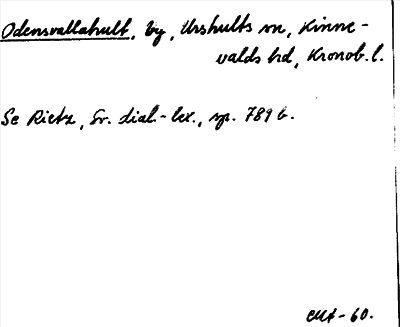 Odensvallahult, by, Urshults sn, Kinne-
valds hd, Kronob. l.
Se Rietz, Sv. dial.-lex., sp. 789 b.
-60.